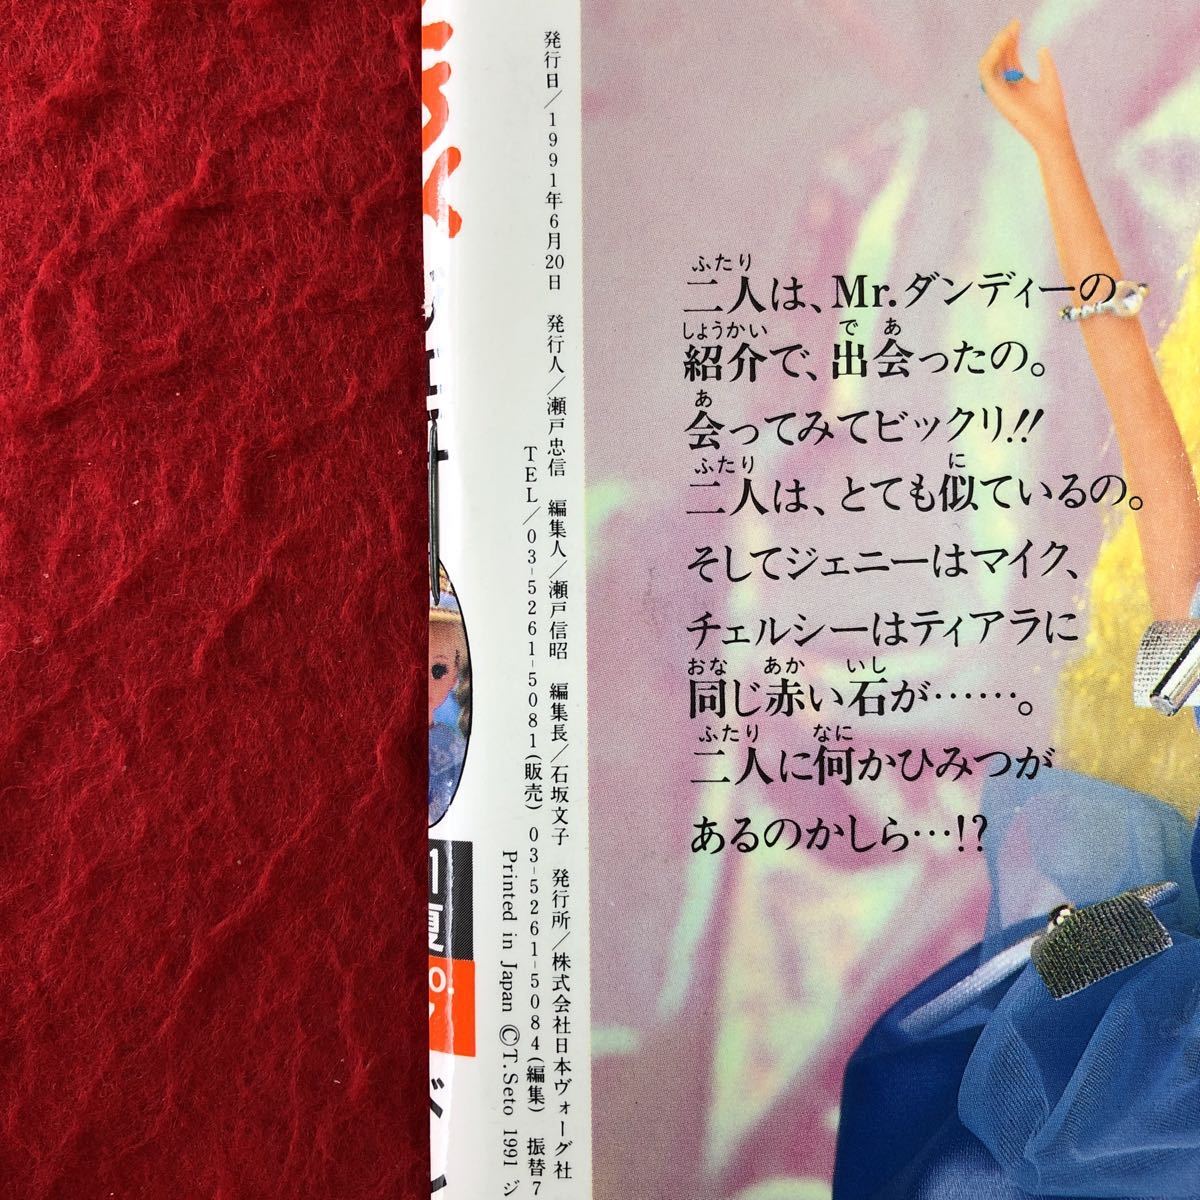 二人は、Mr.ダンディーの
ふたり
紹介で、出会ったの。
しょうかい で あ
会ってみてビックリ!!
あ
二人は、とても似ているの。
ふたり に
そしてジェニーはマイク、
チェルシーはティアラに
同じ赤い石が……。
おな あか いし
二人に何かひみつが
ふたり なに
あるのかしら…!?
発行日/1991年6月20日 発行人/瀬戸忠信 編集人/瀬戸信昭 編集長/石坂文子 発行所/株式会社日本ヴォーグ社
TEL/03-5261-5081(販売) 03-5261-5084(編集) 振替7
Printed in Japan ©T.Seto 1991 ジ
1
夏